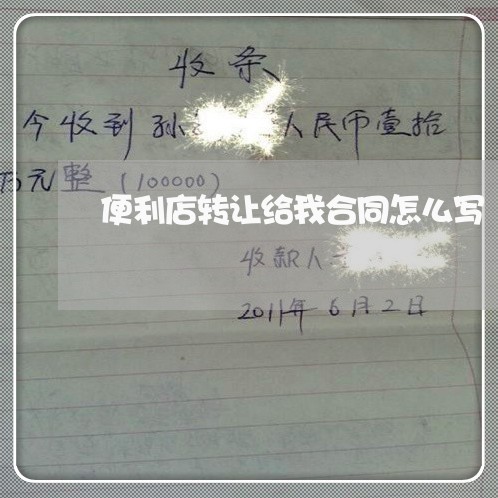 收条
今收到孙 人民币壹拾
万元整（100000）
便利店转让给我合同怎么写
收款人
2011年6月2日